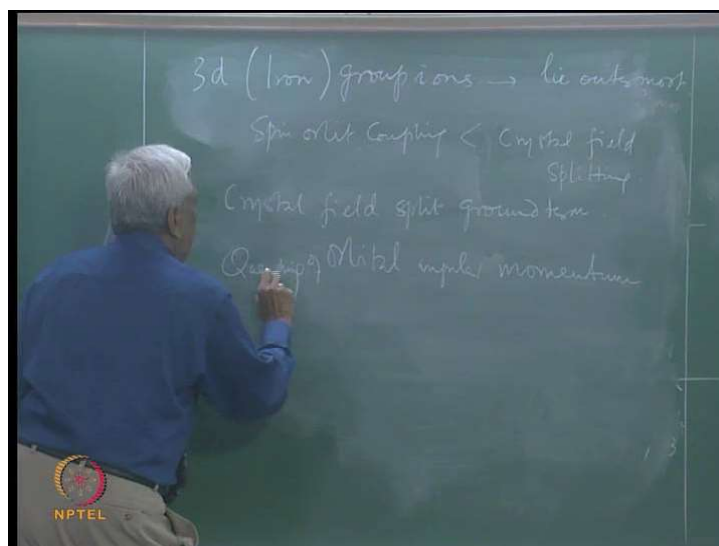 3d (Iron) group ions → lie outermost
Spin orbit Coupling < Crystal field
Splitting
Crystal field split ground term
Quenching of Orbital angular momentum
NPTEL